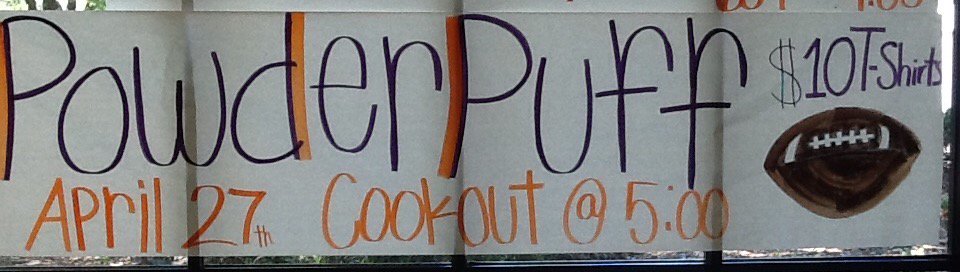 PowderPuff
$10 T-Shirts
April 27th Cookout @ 5:00